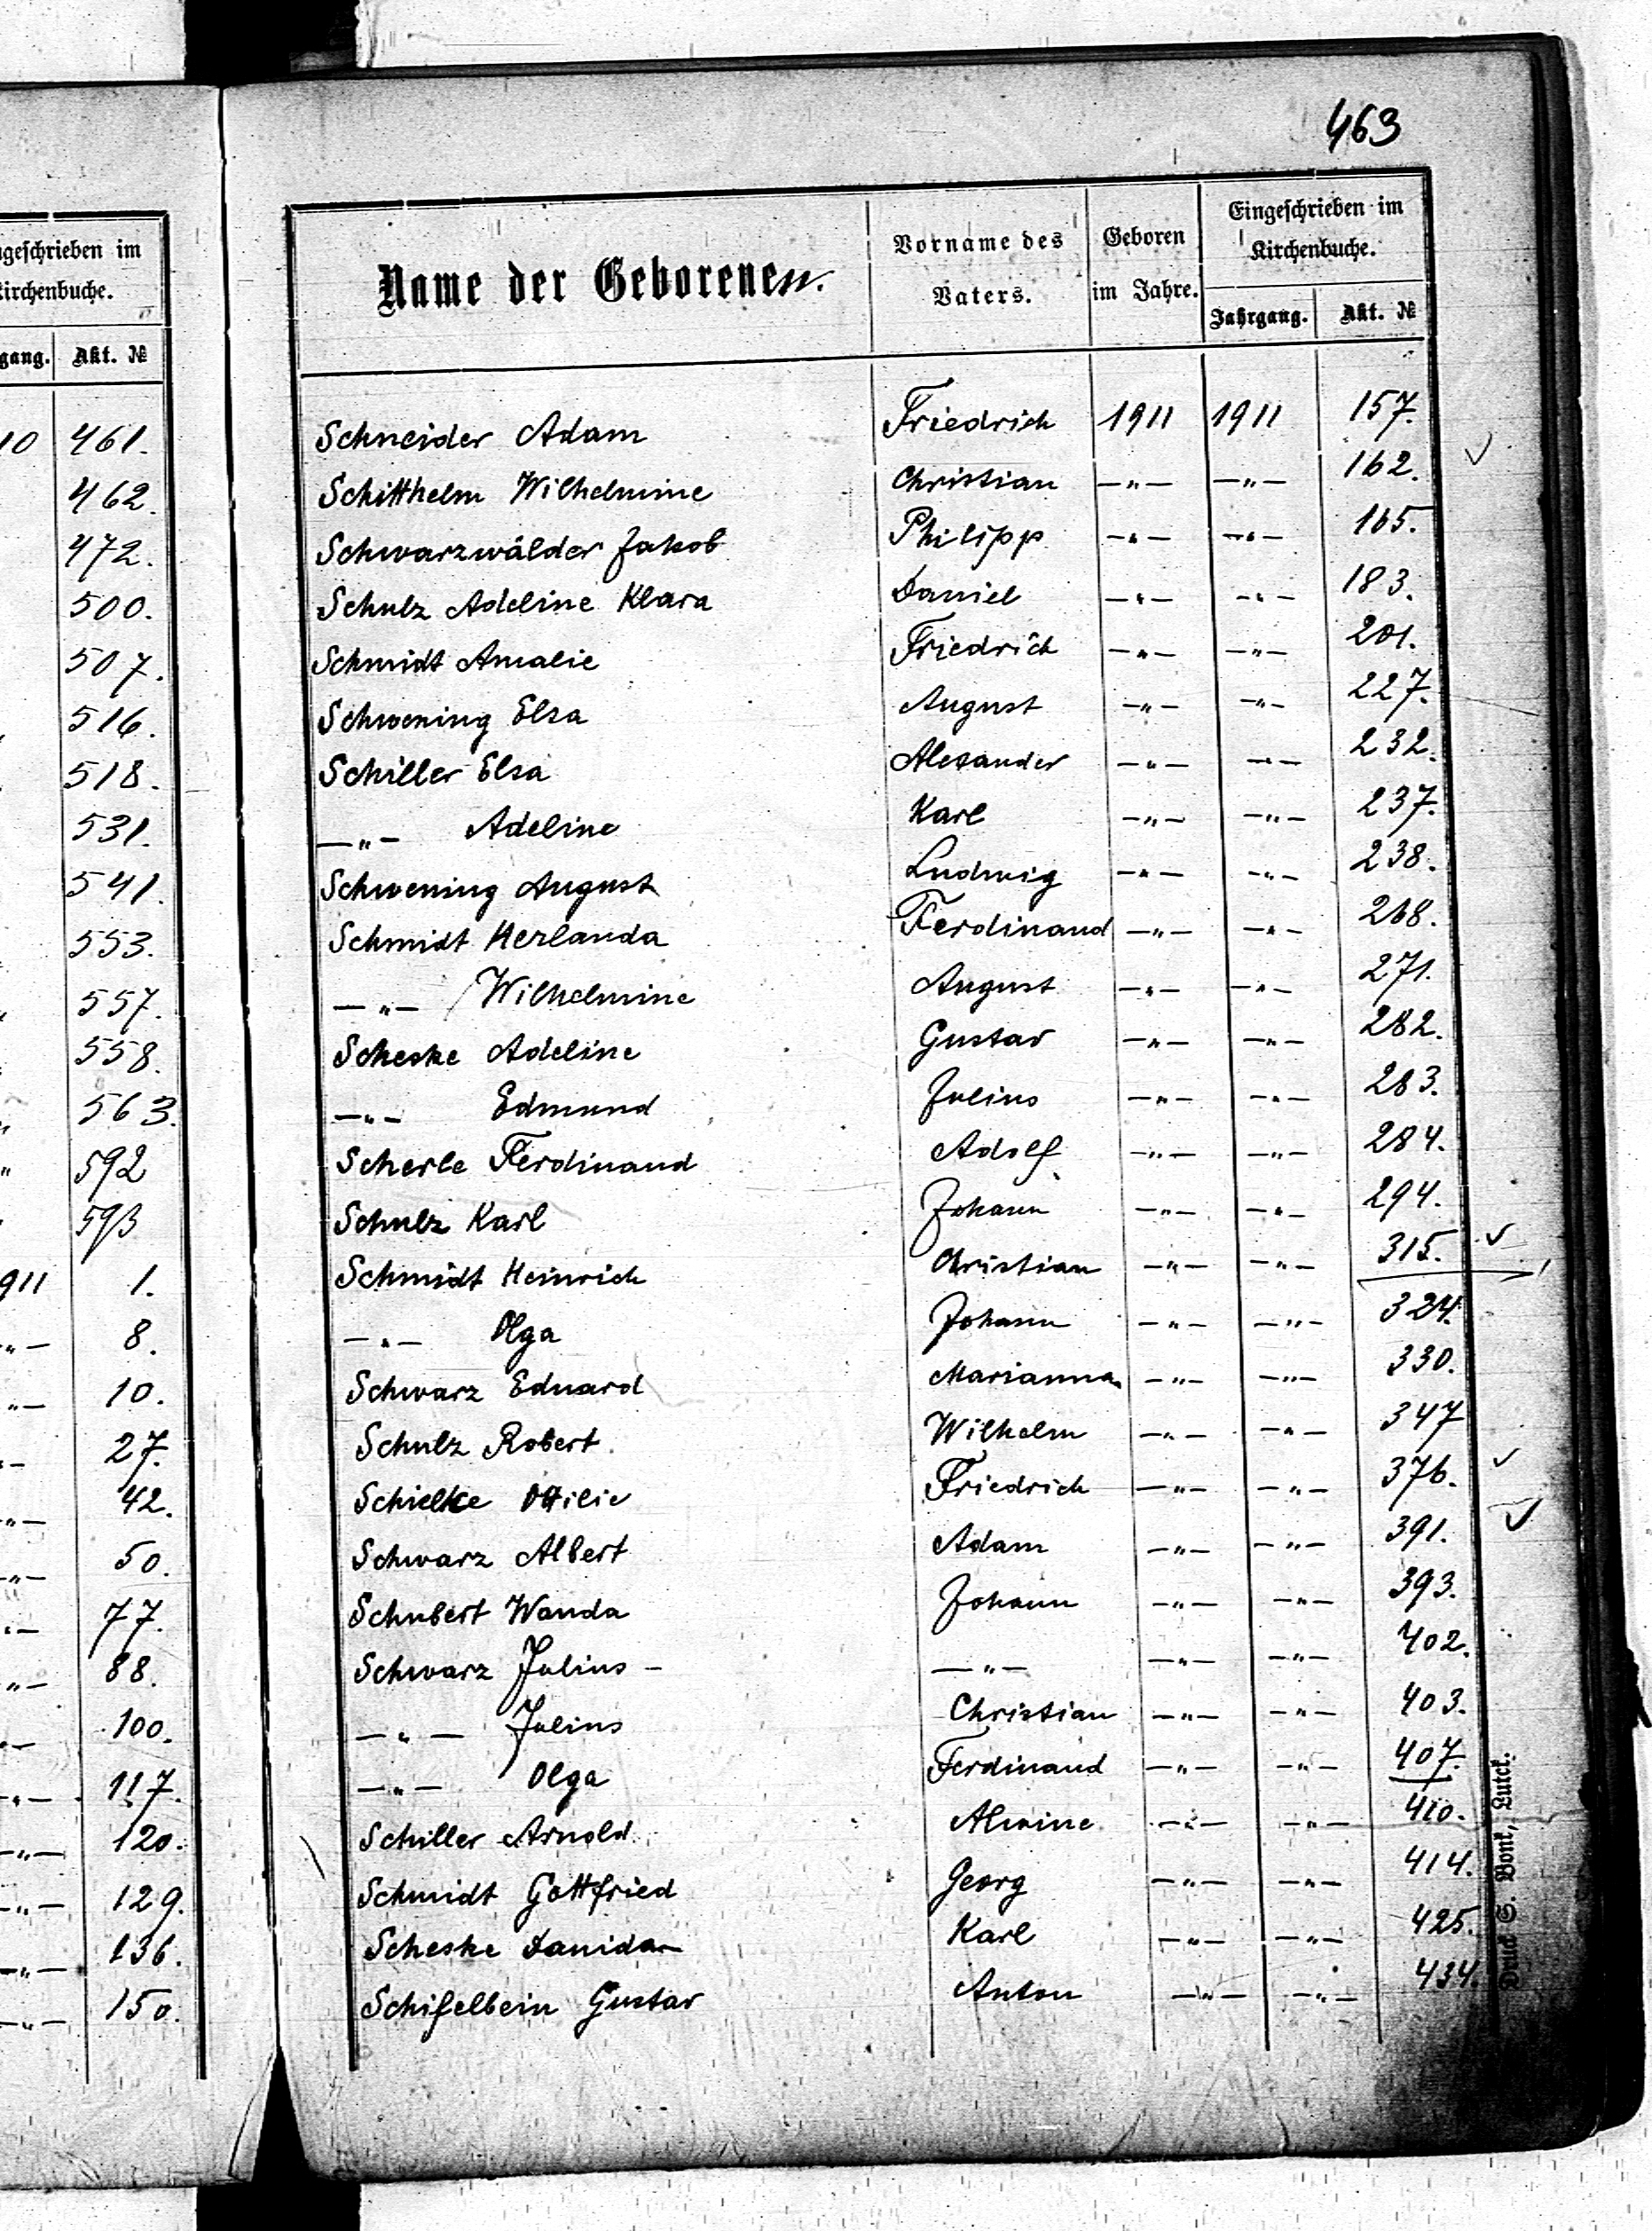 463
geschrieben im
Kirchenbuche.
gang. Akt. №
10 461.
462.
472.
500.
507.
516.
518.
531.
541.
553.
557.
558.
563.
592
593
911 1.
-"- 8.
"- 10.
- 27.
"- 42.
-"- 50.
"- 77.
"- 88.
- 100.
-"- 117.
-"- 120.
-"- 129.
-"- 136.
-"- 150.
Name der Geborenen. Vorname des Vaters. Geboren im Jahre. Eingeschrieben im Kirchenbuche.
Jahrgang. Akt. №
Schneider Adam Friedrich 1911 1911 157.
Schitthelm Wilhelmine Christian -"- -"- 162.
Schwarzwälder Jakob Philipp -"- -"- 165.
Schulz Adeline Klara Daniel -"- -"- 183.
Schmidt Amalie Friedrich -"- -"- 201.
Schwening Elsa August -"- -"- 227.
Schiller Elsa Alexander -"- -"- 232.
-"- Adeline Karl -"- -"- 237.
Schwening August Ludwig -"- -"- 238.
Schmidt Herlanda Ferdinand -"- -"- 268.
-"- Wilhelmine August -"- -"- 271.
Scheske Adeline Gustav -"- -"- 282.
-"- Edmund Julius -"- -"- 283.
Scherle Ferdinand Adolf -"- -"- 284.
Schulz Karl Johann -"- -"- 294.
Schmidt Heinrich Christian -"- -"- 315.
-"- Olga Johann -"- -"- 324.
Schwarz Eduard Marianna -"- -"- 330.
Schulz Robert Wilhelm -"- -"- 347
Schielke Ottilie Friedrich -"- -"- 376.
Schwarz Albert Adam -"- -"- 391.
Schubert Wanda Johann -"- -"- 393.
Schwarz Julius - -"- -"- -"- 402.
-"- Julius Christian -"- -"- 403.
-"- Olga Ferdinand -"- -"- 407.
Schiller Arnold Alwine -"- -"- 410.
Schmidt Gottfried Georg -"- -"- 414.
Scheske Karl -"- -"- 425.
Schifelbein Gustav Anton -"- -"- 434.
Druck S. Bonk, Lutck.